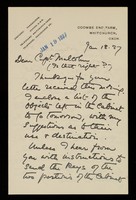 COOMBE END FARM,
WHITCHURCH,
OXON.
JAN 19 1937
Jan 18. 37
Dear Capt Malcolm
(Is that right?)
Thank you for your
letter received this morning.
I enclose a list of the
objects left in the Cabinet
to go tomorrow, with my
suggestions as to their
use & destination.
Unless I hear from
you with instructions to
send the keys of the
two portions of the Cabinet